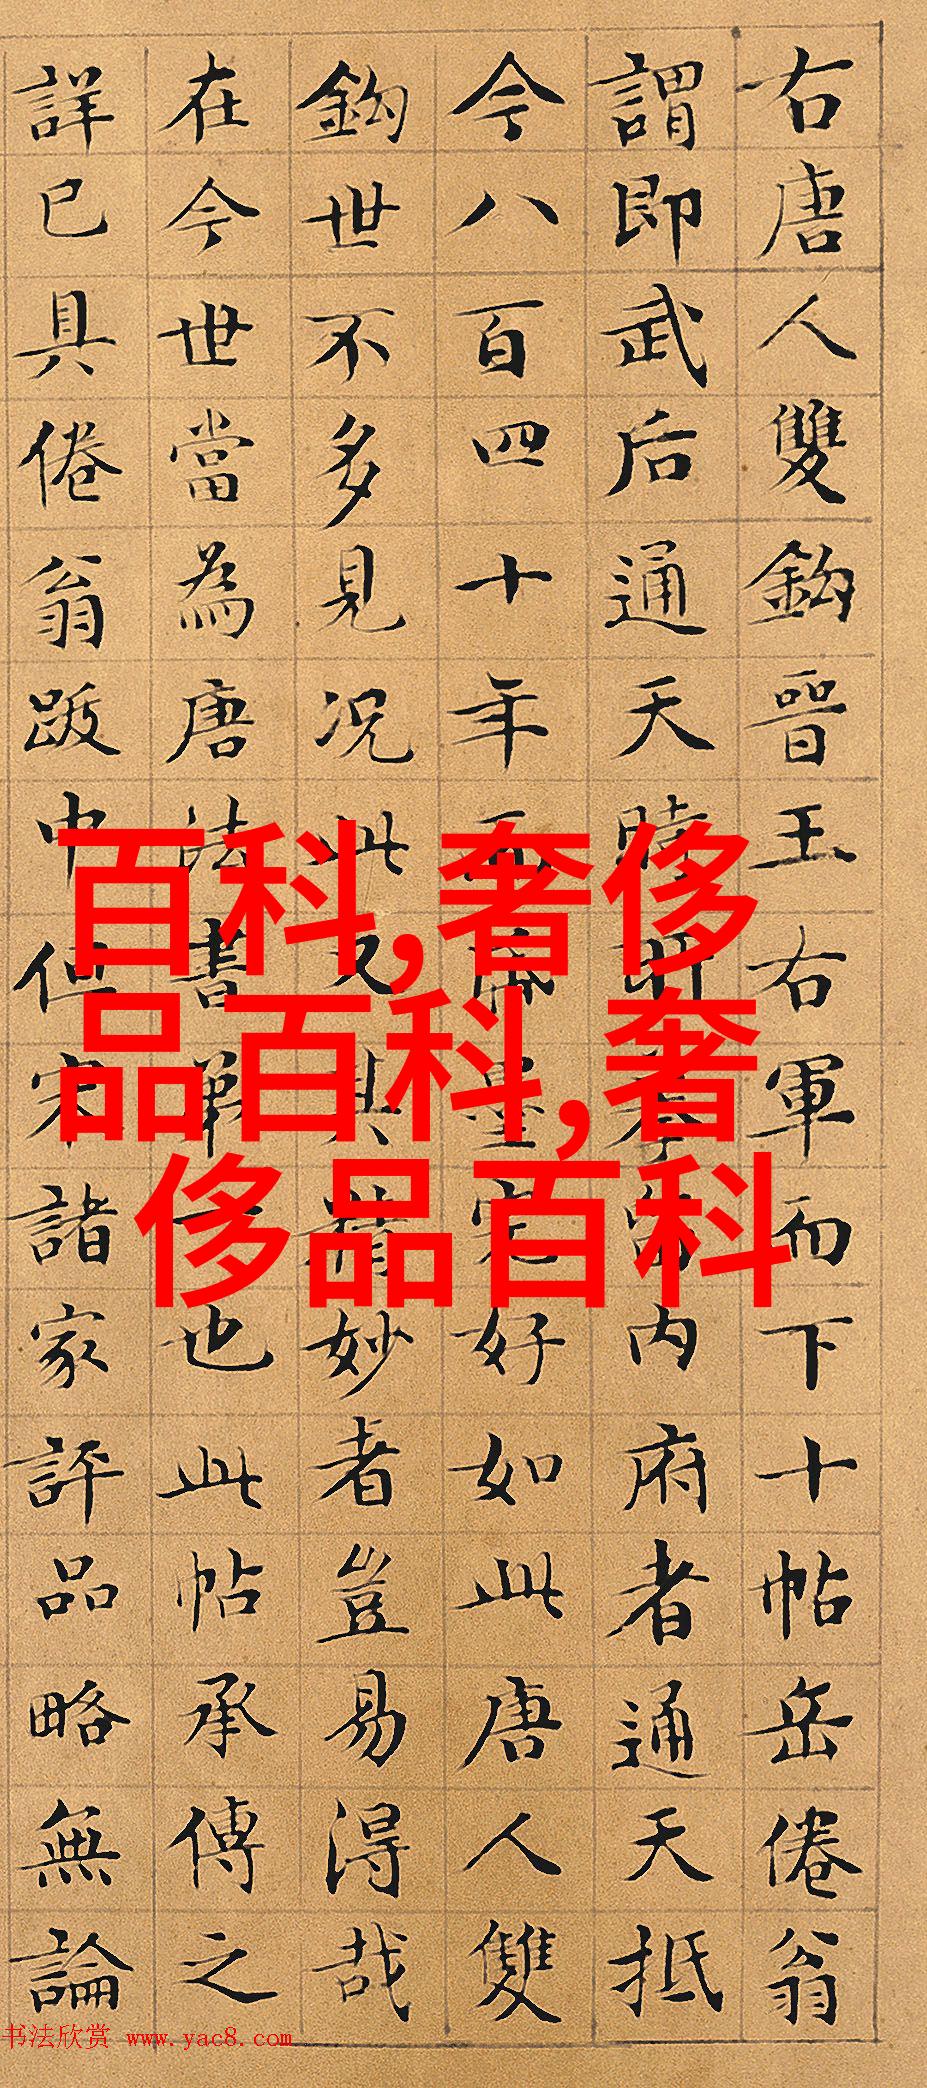 右唐人雙鈎晉王右軍而下十帖岳倦翁
謂即武后通天時所摹留内府者通天抵
今八百四十年而墨完好如此唐人雙
鈎世不多見况此又其精妙者豈易得哉
在今世當為唐法書第一也此帖承傳之
詳已具倦翁跋中但宋諸家評品略無論
百科,奢侈
品百科,奢
侈品百科
书法欣赏 www.yac8.com